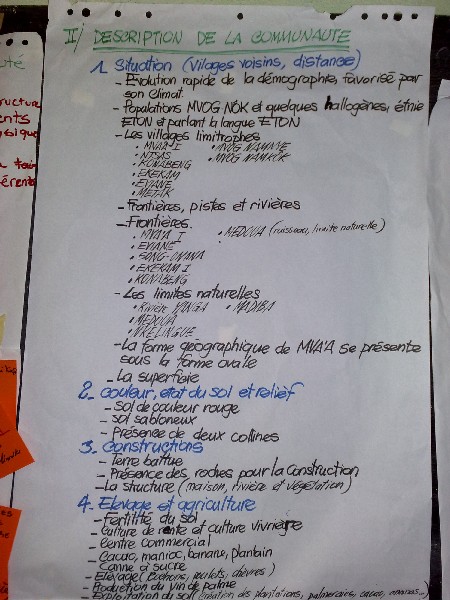 II/ DESCRIPTION DE LA COMMUNAUTE
1. Situation (Vilages voisins, distance)
- Evolution rapide de la démographie, favorisé par
son climat.
- Populations MVOG NOK et quelques hallogènes, étnie
ETON et parlant la langue ETON
- Les villages limitrophes
• MVA'A I • MVOG NAMNYE
• NTSAS • MVOG NAMKOK
• KONABENG
• EKEKAM
• EVIANE
• METAK
- Frontières, pistes et rivières
- Frontières.
• MVA'A I • MEDOUA (ruisseau, limite naturelle)
• EVIANE
• SONG-ONANA
• EKEKAM I
• KONABENG
- Les limites naturelles
• Rivière YANGA • MADIBA
• MEDOUA
• NKELINGUE
- La forme géographique de MVA'A se présente
sous la forme ovale
- La superficie
2. Couleur, etat du sol et relièf
- Sol de couleur rouge
- Sol sabloneux
- Présence de deux collines
3. Constructions
- Terre battue
- Présence des roches pour la construction
- La structure (maison, rivière et végétation)
4. Elevage et agriculture
- Fertilité du sol
- Culture de rente et culture vivrière
- Centre commercial
- Cacao, manioc, banane, plantain
- Canne à sucre
- Elevage (Cochons, poulets, chèvres)
- Production du vin de palme
- Exploitation du sol (création des plantations, palmeraies, cacao, ananas...)